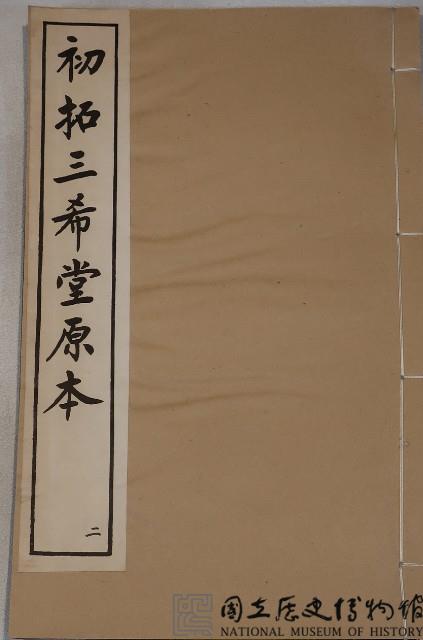 初拓三希堂原本
二
國立歷史博物館
NATIONAL MUSEUM OF HISTORY